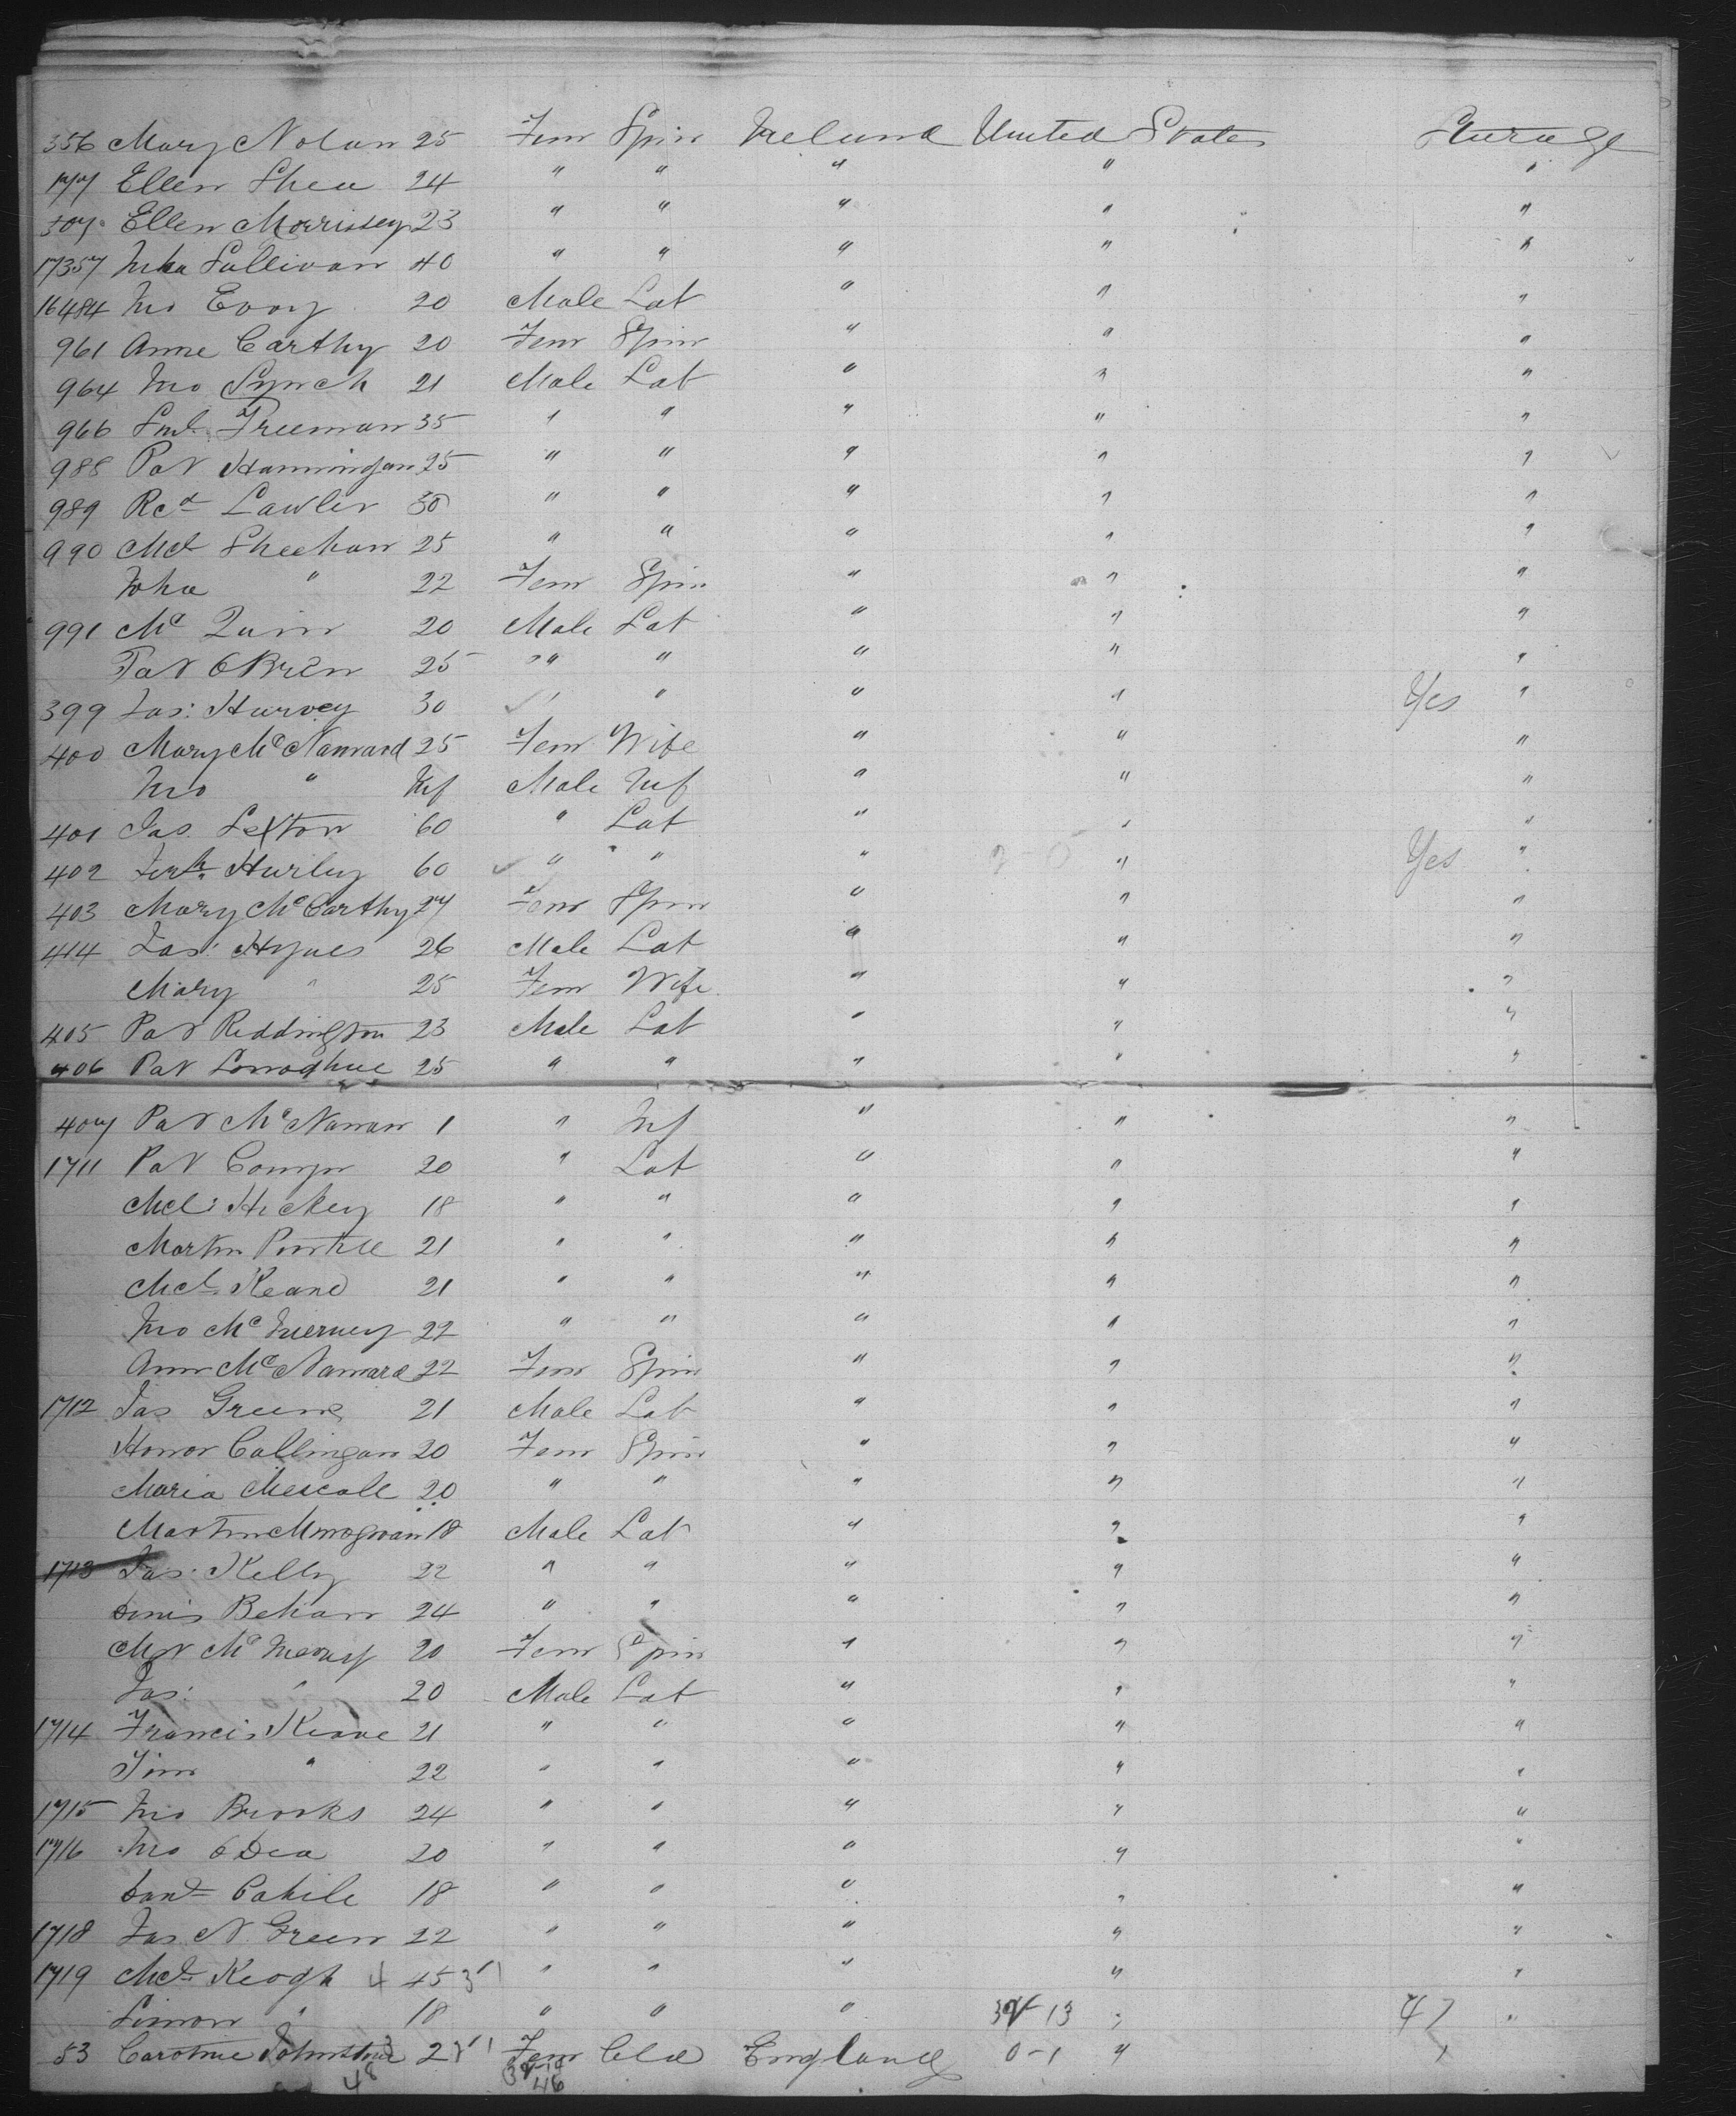 356 Mary Nolan 25 Fem Spin Ireland United States Steerage
177 Ellen Shea 24 " " " " "
307 Ellen Morrissey 23 " " " " "
17357 Sullivan 40 " " " " "
16484 Jno Evoy 20 Male Lab " " "
961 Anne Carthy 20 Fem Spin " " "
964 Jno Lynch 21 Male Lab " " "
966 Freeman 35 " " " " "
988 Pat Hanningan 25 " " " " "
989 Rcd Lawler 30 " " " " "
990 Mcl Sheehan 25 " " " " "
Joha " 22 Fem Spin " " "
991 Quinn 20 Male Lab " " "
Pat OBrien 25 " " " " "
399 Jas: Hurvey 30 " " " " Yes "
400 Mary McNamard 25 Fem Wife " " "
Jno " Inf Male Inf " " "
401 Jas. Sexton 60 " Lab " " "
402 Jerh. Hurley 60 " " " " Yes "
403 Mary McCarthy 27 Fem Spin " " "
414 Jas: Hynes 26 Male Lab " " "
Mary " 25 Fem Wife " " "
405 Pat Reddington 23 Male Lab " " "
406 Pat Donoghue 25 " " " " "
407 Pat McNamar 1 " Inf " " "
1711 Pat Comyn 20 " Lab " " "
Mcl: Hickey 18 " " " " "
Martin 21 " " " " "
Mcl. Keane 21 " " " " "
Jno McInerney 22 " " " " "
Ann McNamara 22 Fem Spin " " "
1712 Jas Greene 21 Male Lab " " "
Honor Callingan 20 Fem Spin " " "
Maria Mescall 20 " " " " "
Martin 18 Male Lab " " "
1713 Jas: Kelly 22 " " " " "
Denis Behan 24 " " " " "
20 Fem Spin " " "
Jas: " 20 Male Lab " " "
1714 Francis Keane 21 " " " " "
Tim " 22 " " " " "
1715 Jno Brooks 24 " " " " "
1716 Jno ODea 20 " " " " "
Danl Cahile 18 " " " " "
1718 Jas N. Green 22 " " " " "
1719 Mcl. Keogh 45 " " " " "
Simon " 18 " " " 13 " 47 "
53 Caroline Johnstone 2 Fem Cld England 0-1 " "
48 46